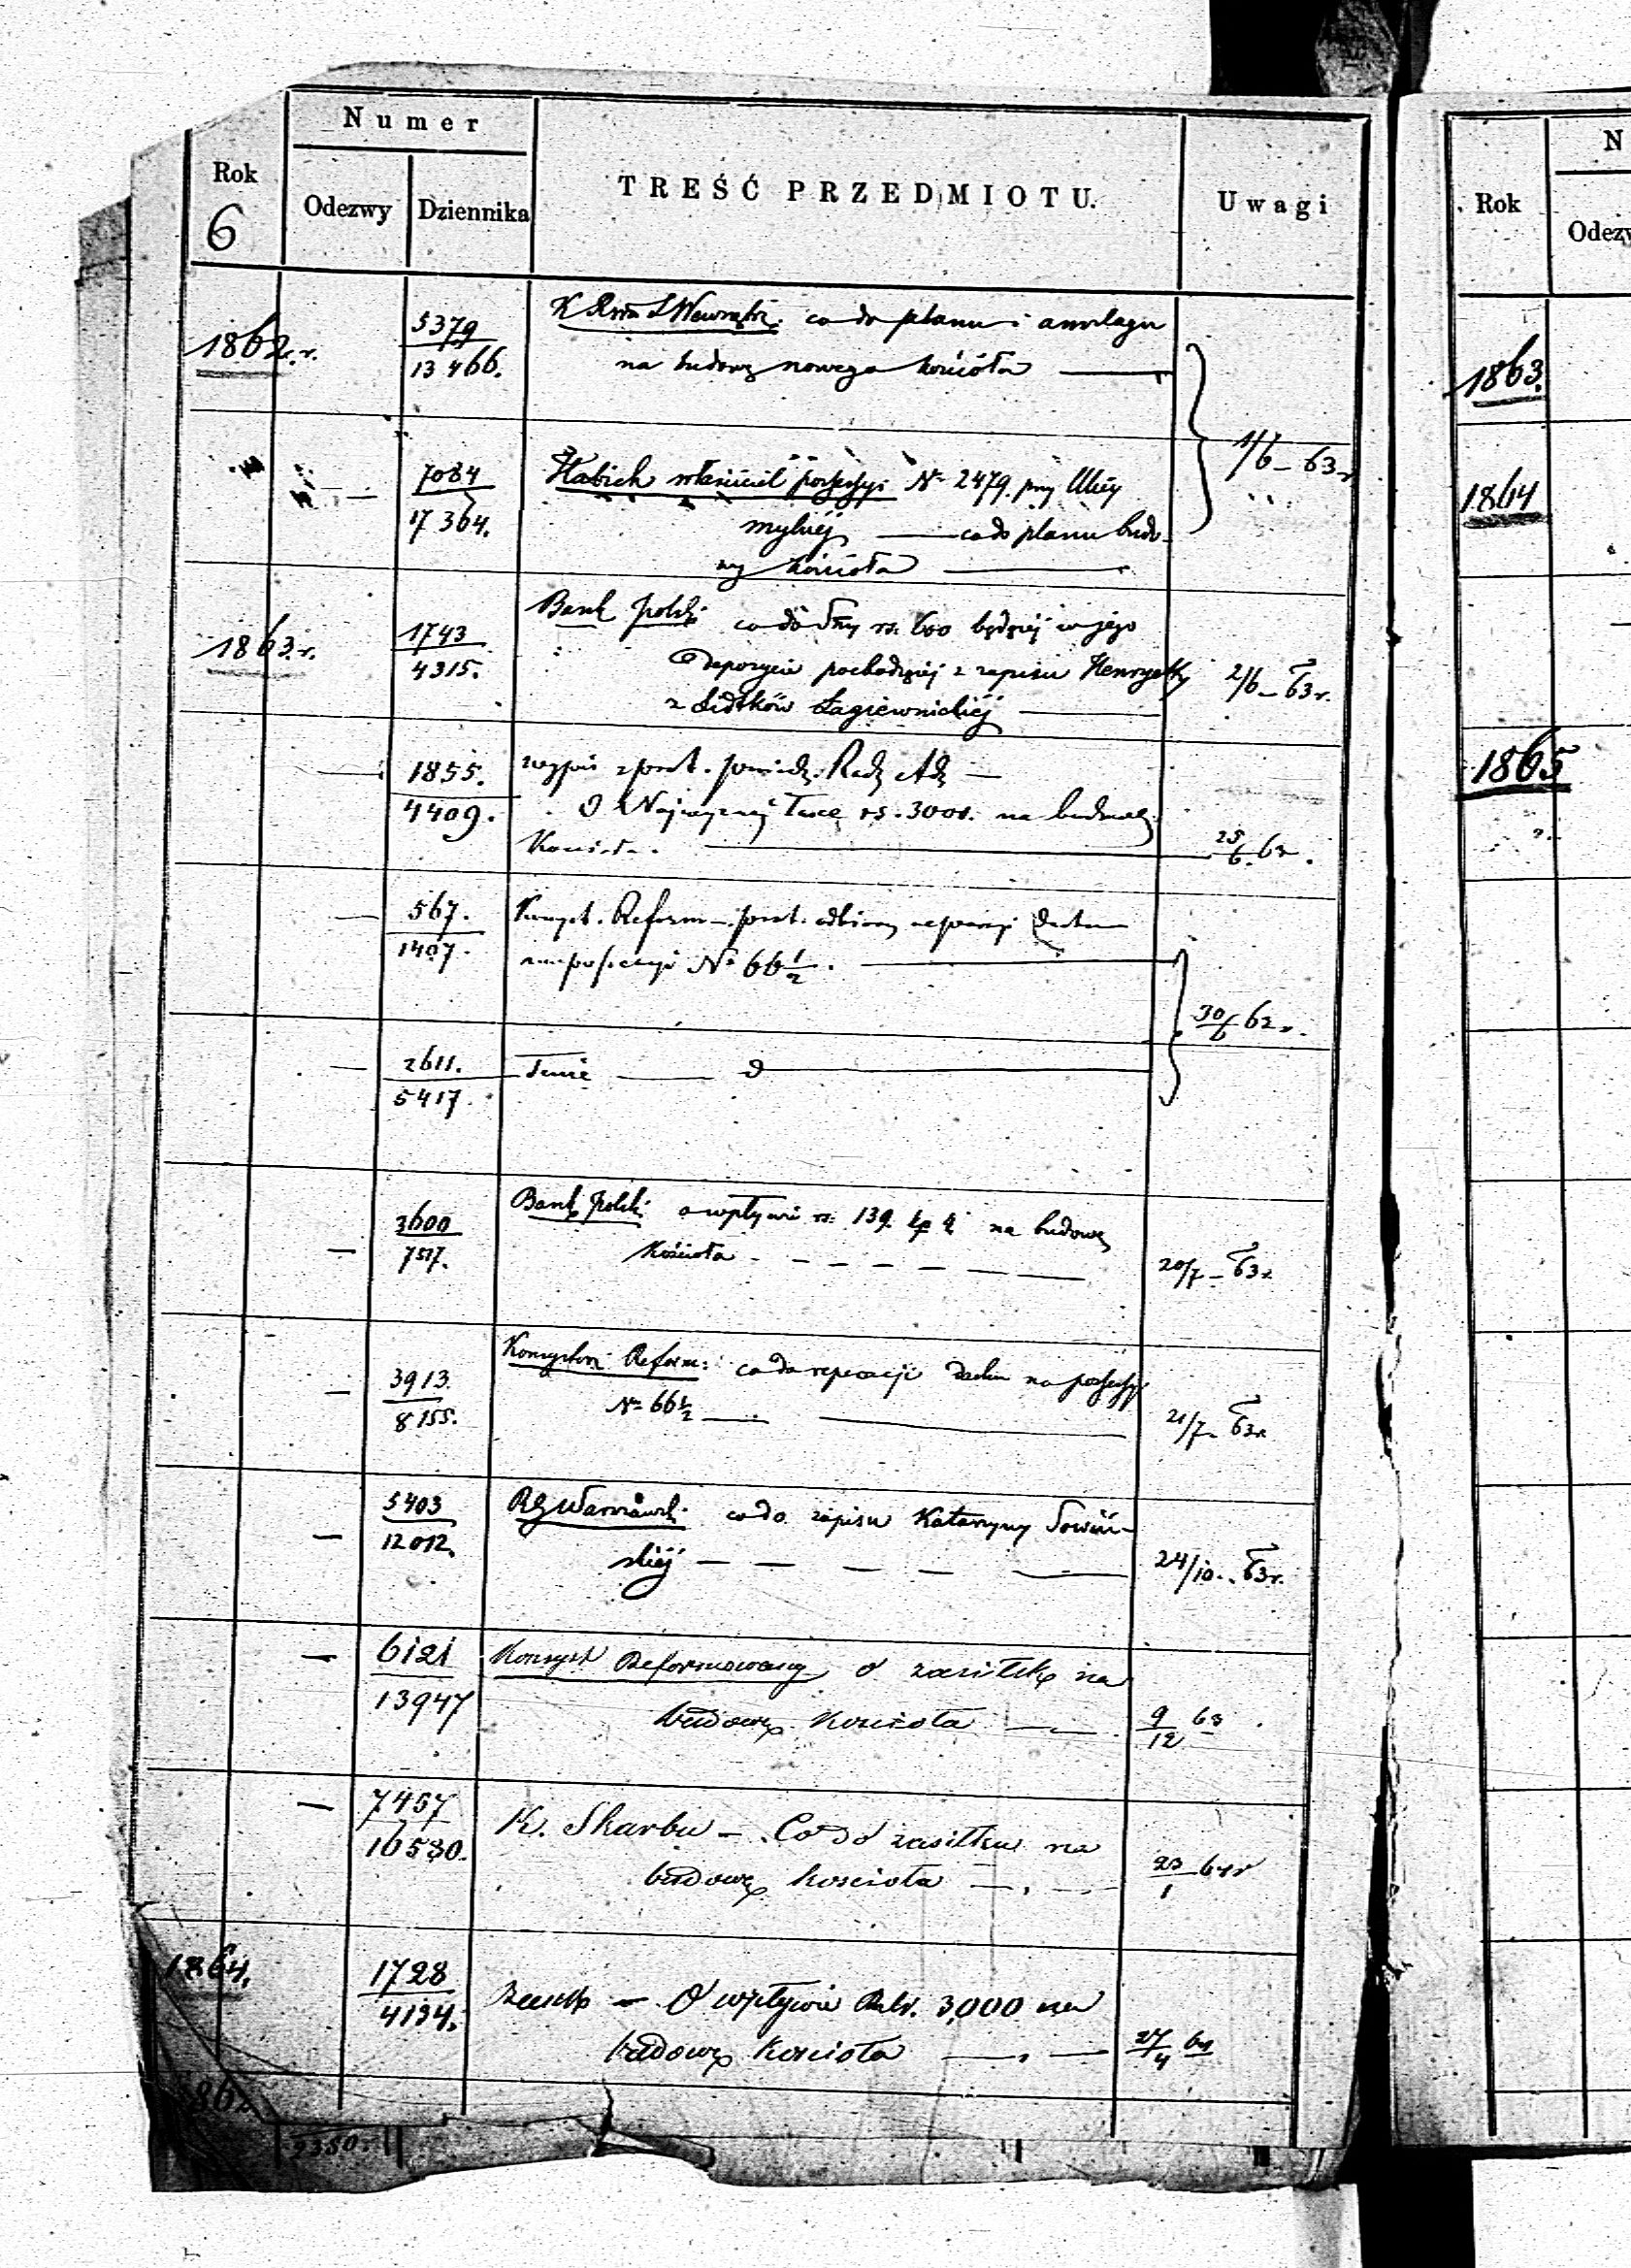 Numer
Rok
Odezwy Dziennika
TREŚĆ PRZEDMIOTU.
Uwagi
6
1862.r.
5379
13466.
co do planu i anszlagu
na budowę nowego kościoła
7084
17364.
Habich właściciel possessyi N 2479. przy Ulicy
mylnéj co do planu budo-
wy kościoła
1/6 - 63 r
1863.r.
1743
4315.
Bank Polski co do Smy rs. 600 będącéj w jego
depozycie pochodzącéj z zapisu Henryetty
z Łagiewnickiéj
2/6 - 63 r.
1855.
4409.
O Najwyższej rs. 3000. na budowę
Kościoła.
25/6. 63.
567.
1407.
Konsyst. Reform - prot.
N 66 1/2.
30/6 63 r.
2611.
5417.
Tenże d
3600
7517.
Bank Polski o wpływie rs. 139. na budowę
Kościoła
20/7 - 63 r.
3913.
8155.
Konsystorz Reform: co do reperacji dachu na possessyi
N 66 1/2
21/7 - 63 r
5403
12012.
RG Warszawski co do zapisu Katarzyny Sowiń-
skiéj
24/10. 63 r.
6121
13947
Konsyst Reformowany o zasiłek na
budowę Kościoła
9/12 63
7457
16530.
K. Skarbu - Co do zasiłku na
budowę kościoła
23/1 64 r
1864.
1728
4134.
O wpływie Rsr. 3,000 na
budowę Kościoła
27/4 64
9380.
N
Rok
Odezw
1863.
1864
1865